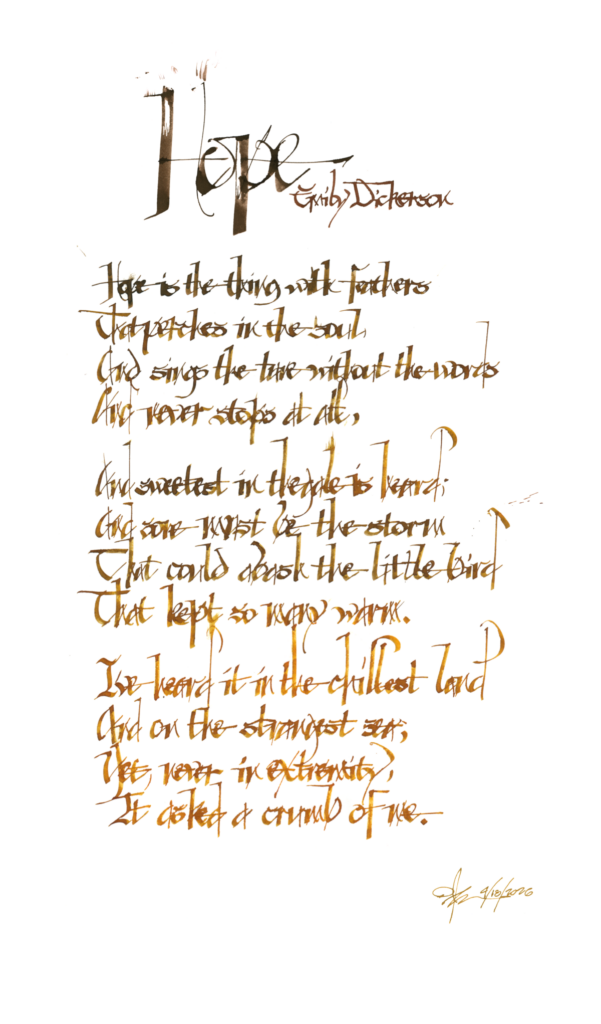 Hope
Emily Dickerson
Hope is the thing with feathers
That perches in the soul,
And sings the tune without the words
And never stops at all,
And sweetest in the gale is heard;
And sore must be the storm
That could abash the little bird
That kept so many warm.
I've heard it in the chillest land
And on the strangest sea;
Yet, never in extremity,
It asked a crumb of me.